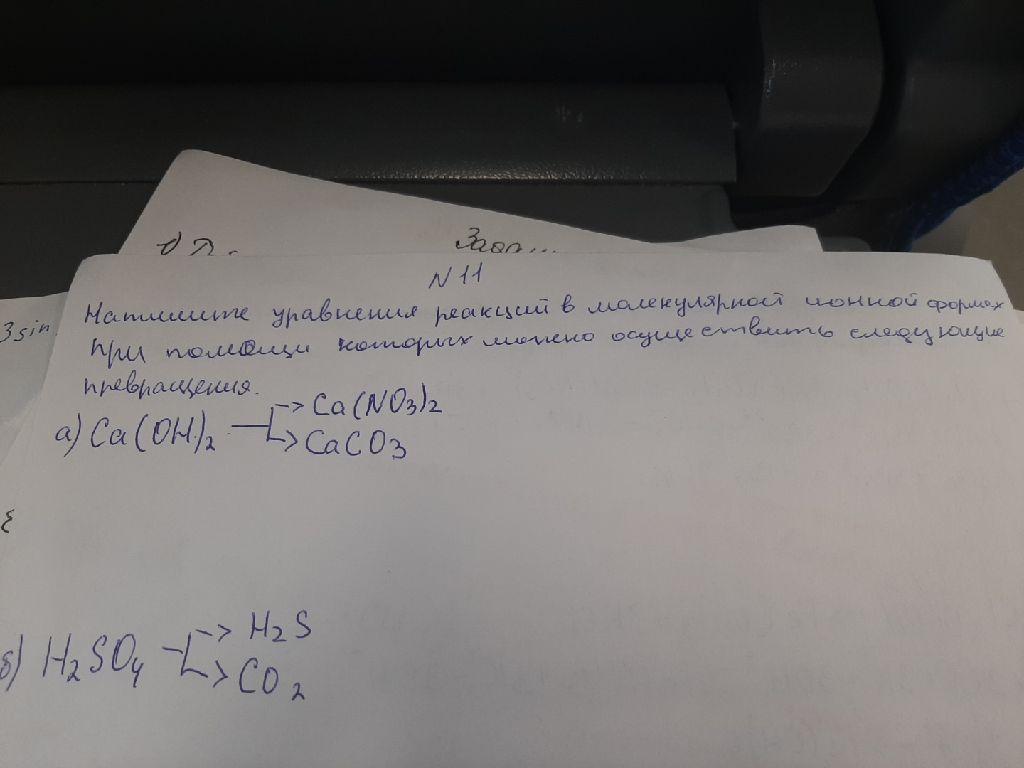 3 sin
N 11
Напишите уравнения реакций в молекулярной ионной формах
при помощи которых можно осуществить следующие
превращения.
а) Ca(OH)2 → Ca(NO3)2
→ CaCO3
б) H2SO4 → H2S
→ CO2